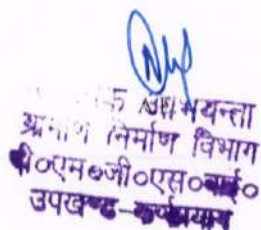 अभियन्ता
ग्रामीण निर्माण विभाग
पी०एम०जी०एस०वाई०
उपखण्ड-कर्णप्रयाग